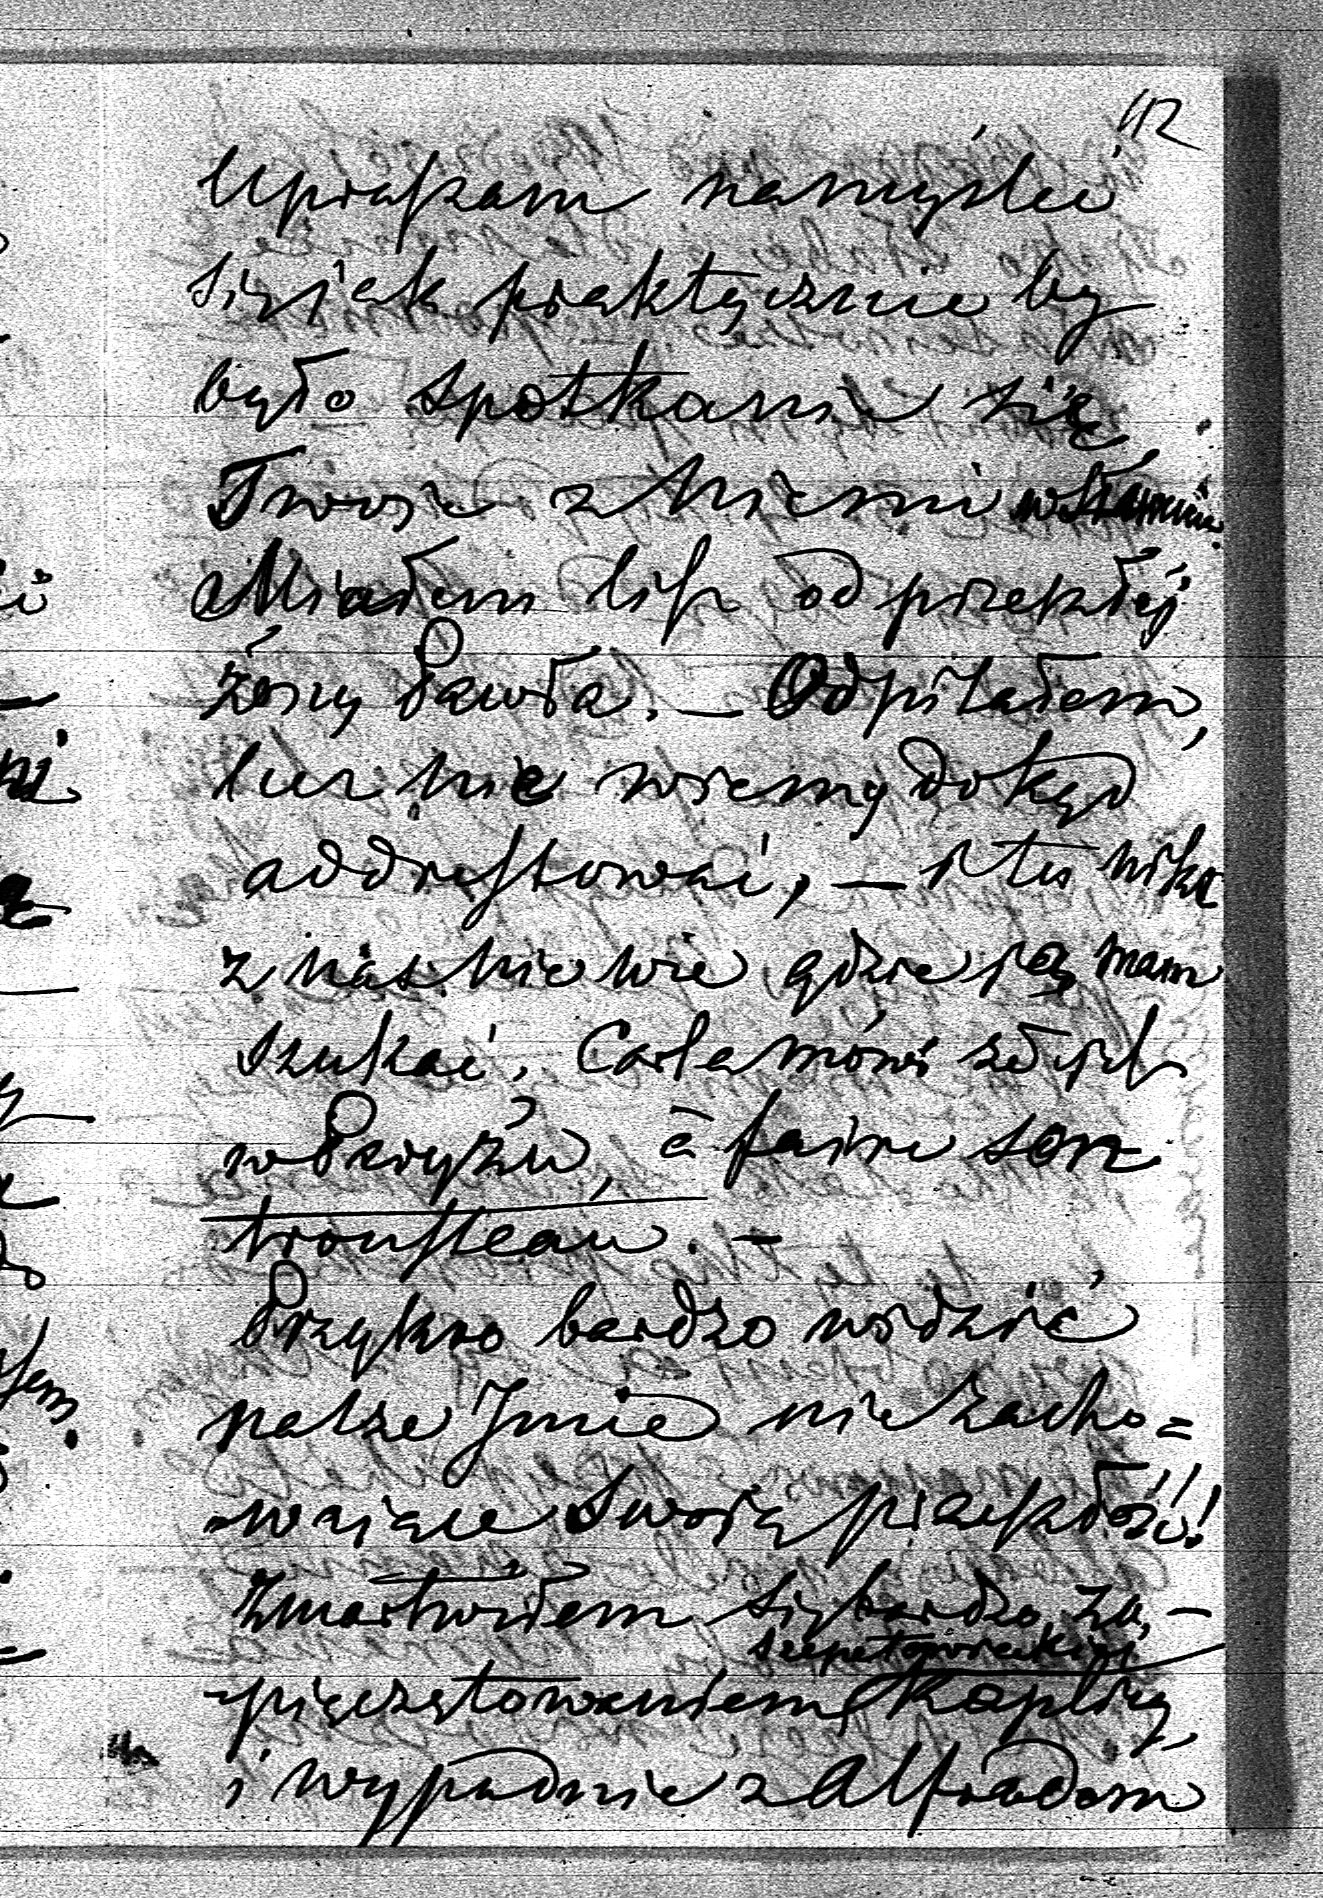 42
Upraszam namyśleć
się jak praktycznie by
było spotkanie się
Twoje z Niemi
Miałem list od przeszłéj
żony Pawła. — Odpisałem,
lecz nie wiemy dokąd
addressować, — i tu nikt
z nas nie wie gdzie jéj mam
szukać. Carla mówi że jest
w Paryżu, à faire son
trousseau. —
Przykro bardzo widzieć
nasze Jmie nie zacho=
wające swoją piękność!
Zmartwiłem się bardzo za, —
szepetowieckiéj
pieczętowaniem Kaplicy,
i wypadnie z Alfredom